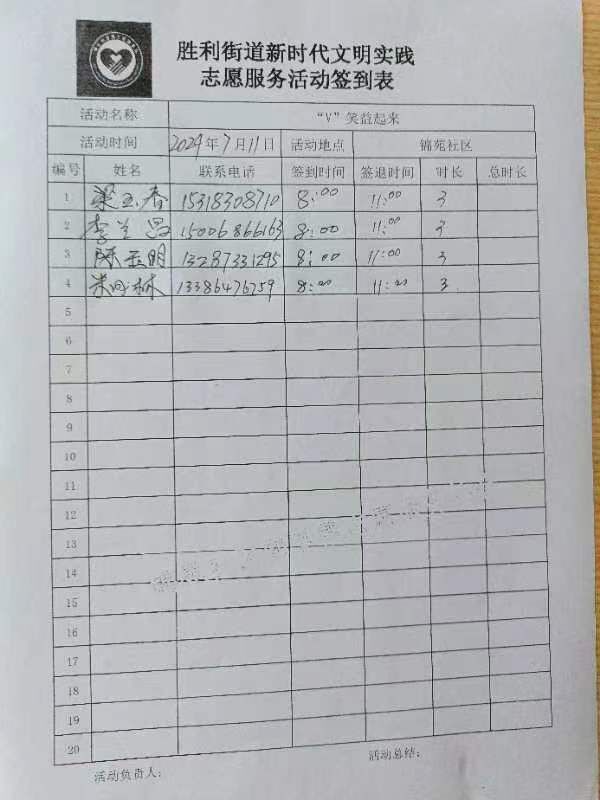 胜利街道新时代文明实践
志愿服务活动签到表
活动名称 “V”笑益起来
活动时间 2024年7月11日 活动地点 锦苑社区
编号 姓名 联系电话 签到时间 签退时间 时长 总时长
1 梁玉春 15318308710 8:00 11:00 3
2 李兰昌 15006866163 8:00 11:00 3
3 陈玉明 13287331295 8:00 11:00 3
4 林 13386476759 8:00 11:00 3
5
6
7
8
9
10
11
12
13
14
15
16
17
18
19
20
活动负责人: 活动总结: